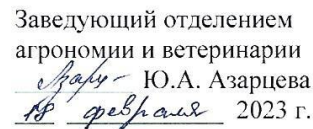 Заведующий отделением
агрономии и ветеринарии
Ю.А. Азарцева
18 февраля 2023 г.